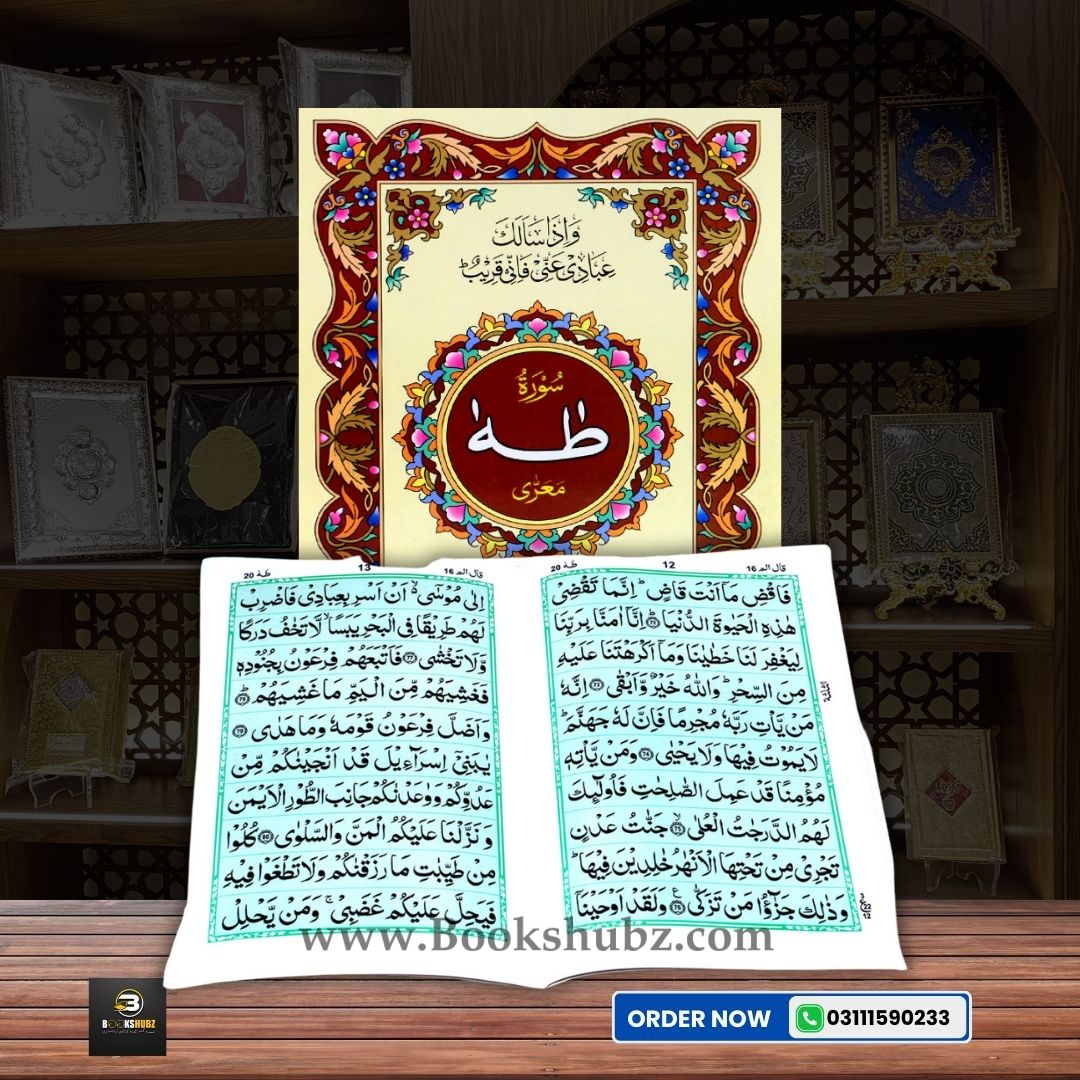 وَاِذَا سَاَلَكَ
عِبَادِیْ عَنِّیْ فَاِنِّیْ قَرِیْبٌ ؕ
سُوْرَةُ
طٰهٰ
مَعَرّٰی
قال الم ١٦
12
طٰهٰ 20
فَاقْضِ مَاۤ اَنْتَ قَاضٍ ؕ اِنَّمَا تَقْضِیْ
هٰذِهِ الْحَیٰوةَ الدُّنْیَا ؕ ﴿۷۲﴾ اِنَّاۤ اٰمَنَّا بِرَبِّنَا
لِیَغْفِرَ لَنَا خَطٰیٰنَا وَمَاۤ اَكْرَهْتَنَا عَلَیْهِ
مِنَ السِّحْرِ ؕ وَاللّٰهُ خَیْرٌ وَّاَبْقٰی ﴿۷۳﴾ اِنَّهٗ
مَنْ یَّاْتِ رَبَّهٗ مُجْرِمًا فَاِنَّ لَهٗ جَهَنَّمَ ؕ
لَا یَمُوْتُ فِیْهَا وَلَا یَحْیٰی ﴿۷۴﴾ وَمَنْ یَّاْتِهٖ
مُؤْمِنًا قَدْ عَمِلَ الصّٰلِحٰتِ فَاُولٰٓئِكَ
لَهُمُ الدَّرَجٰتُ الْعُلٰی ۙ﴿۷۵﴾ جَنّٰتُ عَدْنٍ
تَجْرِیْ مِنْ تَحْتِهَا الْاَنْهٰرُ خٰلِدِیْنَ فِیْهَا ؕ
وَذٰلِكَ جَزٰٓؤُا مَنْ تَزَكّٰی ﴿۷۶﴾ وَلَقَدْ اَوْحَیْنَاۤ
قال الم 16
13
طٰهٰ 20
اِلٰی مُوْسٰۤی ۙ اَنْ اَسْرِ بِعِبَادِیْ فَاضْرِبْ
لَهُمْ طَرِیْقًا فِی الْبَحْرِ یَبَسًا ۙ لَّا تَخٰفُ دَرَكًا
وَّلَا تَخْشٰی ﴿۷۷﴾ فَاَتْبَعَهُمْ فِرْعَوْنُ بِجُنُوْدِهٖ
فَغَشِیَهُمْ مِّنَ الْیَمِّ مَا غَشِیَهُمْ ؕ﴿۷۸﴾
وَاَضَلَّ فِرْعَوْنُ قَوْمَهٗ وَمَا هَدٰی ﴿۷۹﴾
یٰبَنِیْۤ اِسْرَآءِیْلَ قَدْ اَنْجَیْنٰكُمْ مِّنْ
عَدُوِّكُمْ وَوٰعَدْنٰكُمْ جَانِبَ الطُّوْرِ الْاَیْمَنَ
وَنَزَّلْنَا عَلَیْكُمُ الْمَنَّ وَالسَّلْوٰی ﴿۸۰﴾ كُلُوْا
مِنْ طَیِّبٰتِ مَا رَزَقْنٰكُمْ وَلَا تَطْغَوْا فِیْهِ
فَیَحِلَّ عَلَیْكُمْ غَضَبِیْ ۚ وَمَنْ یَّحْلِلْ
www.Bookshubz.com
BOOKSHUBZ
ORDER NOW
03111590233